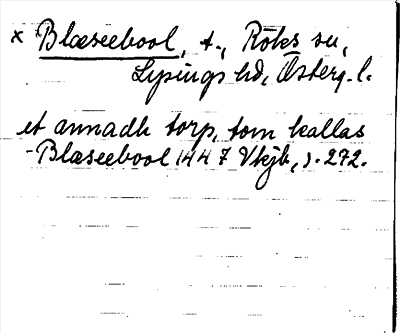 × Blæseebool, t., Röks sn,
Lysings hd, Österg. l.
et annadh torp, som kallas
- Blæseebool 1447 Vkjb, s. 272.